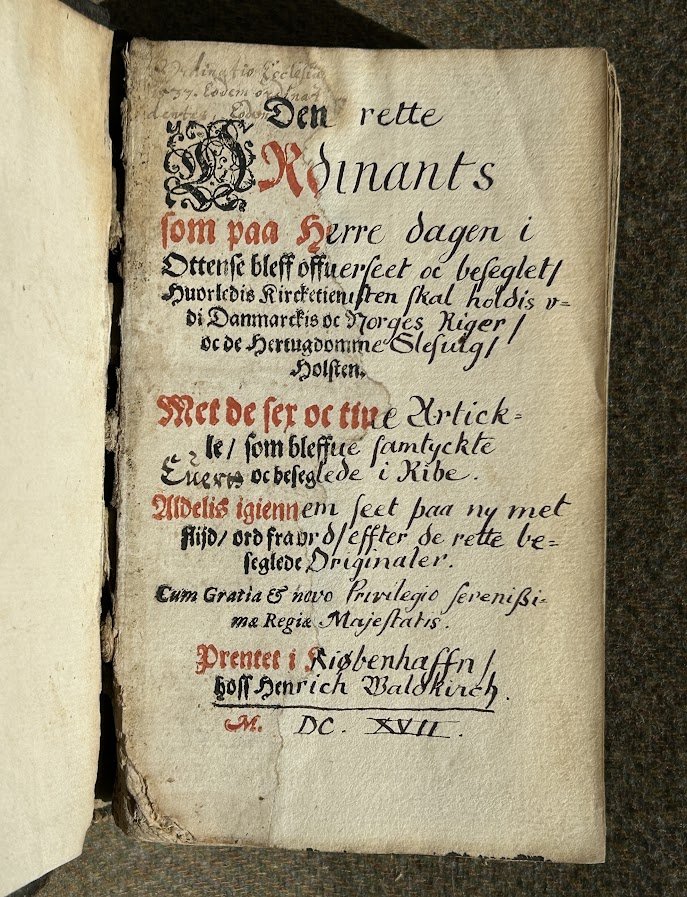 Ordinatio Ecclesia
Eodem ordinat
Den rette
ORdinants
som paa Herre dagen i
Ottense bleff offuerseet oc beseglet/
Huorledis Kircketienisten skal holdis v-
di Danmarckis oc Norges Riger/
oc de Hertugdomme Slesuig/
Holsten.
Met de sex oc tiue Artick-
le/ som bleffue samtyckte
oc beseglede i Ribe.
Aldelis igiennem seet paa ny met
flijd/ ord fra ord/ effter de rette be-
seglede Originaler.
Cum Gratia & novo Privilegio serenißi-
mæ Regiæ Majestatis.
Prentet i Kiøbenhaffn/
hoss Henrich Waldkirch.
M. DC. XVII.